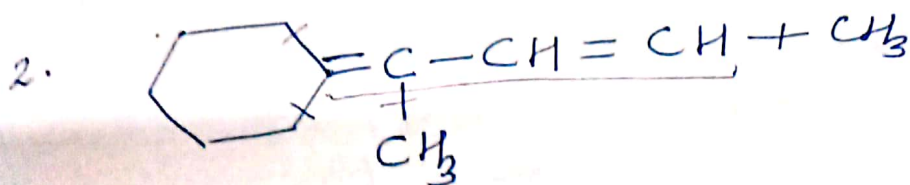 2. =C-CH=CH+CH3
CH3